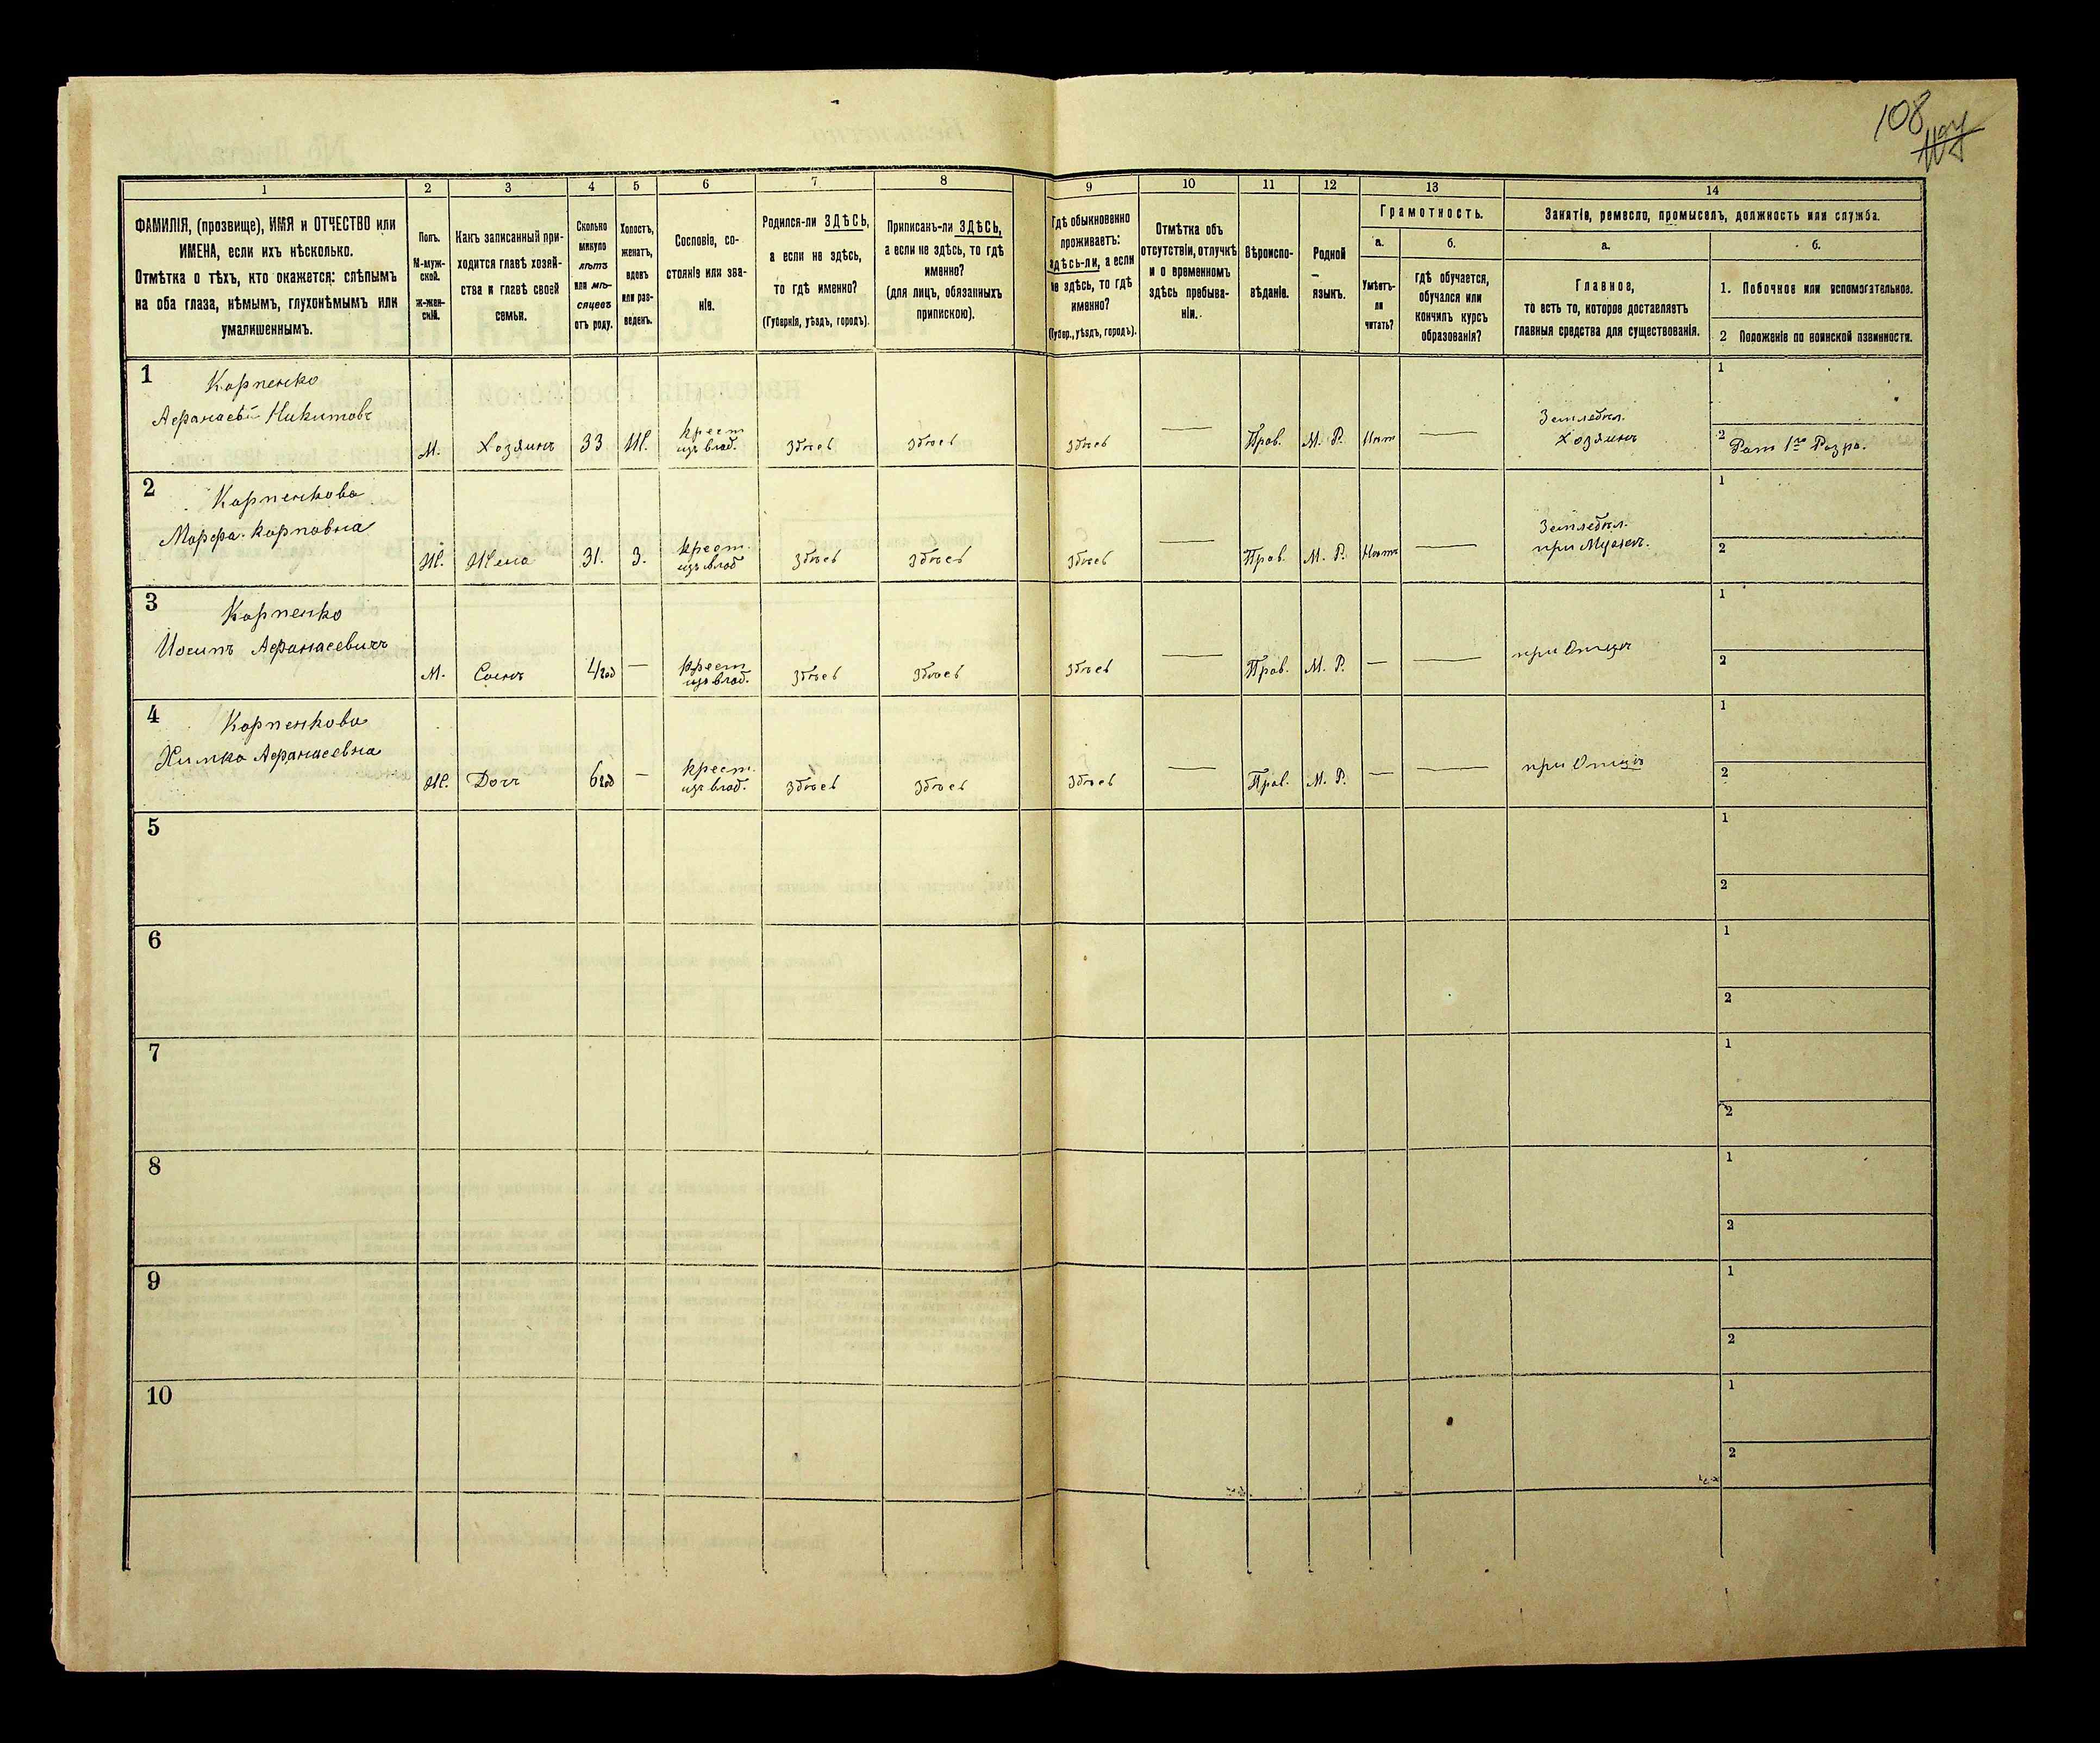 108
1
2
3
4
5
6
7
8
9
10
11
12
13
14
ФАМИЛІЯ, (прозвище), ИМЯ и ОТЧЕСТВО или
ИМЕНА, если ихъ нѣсколько.
Отмѣтка о тѣхъ, кто окажется: слѣпымъ
на оба глаза, нѣмымъ, глухонѣмымъ или
умалишеннымъ.
Полъ.
М-муж-
ской.
ж-жен-
скій.
Какъ записанный при-
ходится главѣ хозяй-
ства и главѣ своей
семьи.
Сколько
минуло
лѣтъ
или мѣ-
сяцевъ
отъ роду.
Холостъ,
женатъ,
вдовъ
или раз-
веденъ.
Сословіе, со-
стояніе или зва-
ніе.
Родился-ли ЗДѢСЬ,
а если не здѣсь,
то гдѣ именно?
(Губернія, уѣздъ, городъ).
Приписанъ-ли ЗДѢСЬ,
а если не здѣсь, то гдѣ
именно?
(для лицъ, обязанныхъ
припискою).
Гдѣ обыкновенно
проживаетъ:
здѣсь-ли, а если
не здѣсь, то гдѣ
именно?
(Губер., уѣздъ, городъ).
Отмѣтка объ
отсутствіи, отлучкѣ
и о временномъ
здѣсь пребыва-
ніи.
Вѣроиспо-
вѣданіе.
Родной
–
языкъ.
Грамотность.
а.
Умѣетъ-
ли
читать?
б.
гдѣ обучается,
обучался или
кончилъ курсъ
образованія?
Занятіе, ремесло, промыселъ, должность или служба.
а.
Главное,
то есть то, которое доставляетъ
главныя средства для существованія.
б.
1. Побочное или вспомогательное.
2 Положеніе по воинской повинности.
1
Карпенко
Афанасій Никитовъ
М.
Хозяинъ
33
Ж.
крест
изъ влад.
Здѣсь
Здѣсь
Здѣсь
—
Прав.
М. Р.
Нѣт
—
Земледѣл.
Хозяинъ
1
2 Рат 1го Разря.
2
Карпенкова
Марфа Карповна
Ж.
Жена
31.
З.
крест.
изъ влад
Здѣсь
Здѣсь
Здѣсь
—
Прав.
М. Р.
Нѣтъ
—
Земледѣл.
при Мужѣ.
1
2
3
Карпенко
Иосипъ Афанасевичъ
М.
Сынъ
4 год
—
крест
изъ влад.
Здѣсь
Здѣсь
Здѣсь
—
Прав.
М. Р.
—
—
при Отцѣ
1
2
4
Карпенкова
Химка Афанасевна
Ж.
Доч
6 год
—
крест.
изъ влад.
Здѣсь
Здѣсь
Здѣсь
—
Прав.
М. Р.
—
—
при Отцѣ
1
2
5
1
2
6
1
2
7
1
2
8
1
2
9
1
2
10
1
2